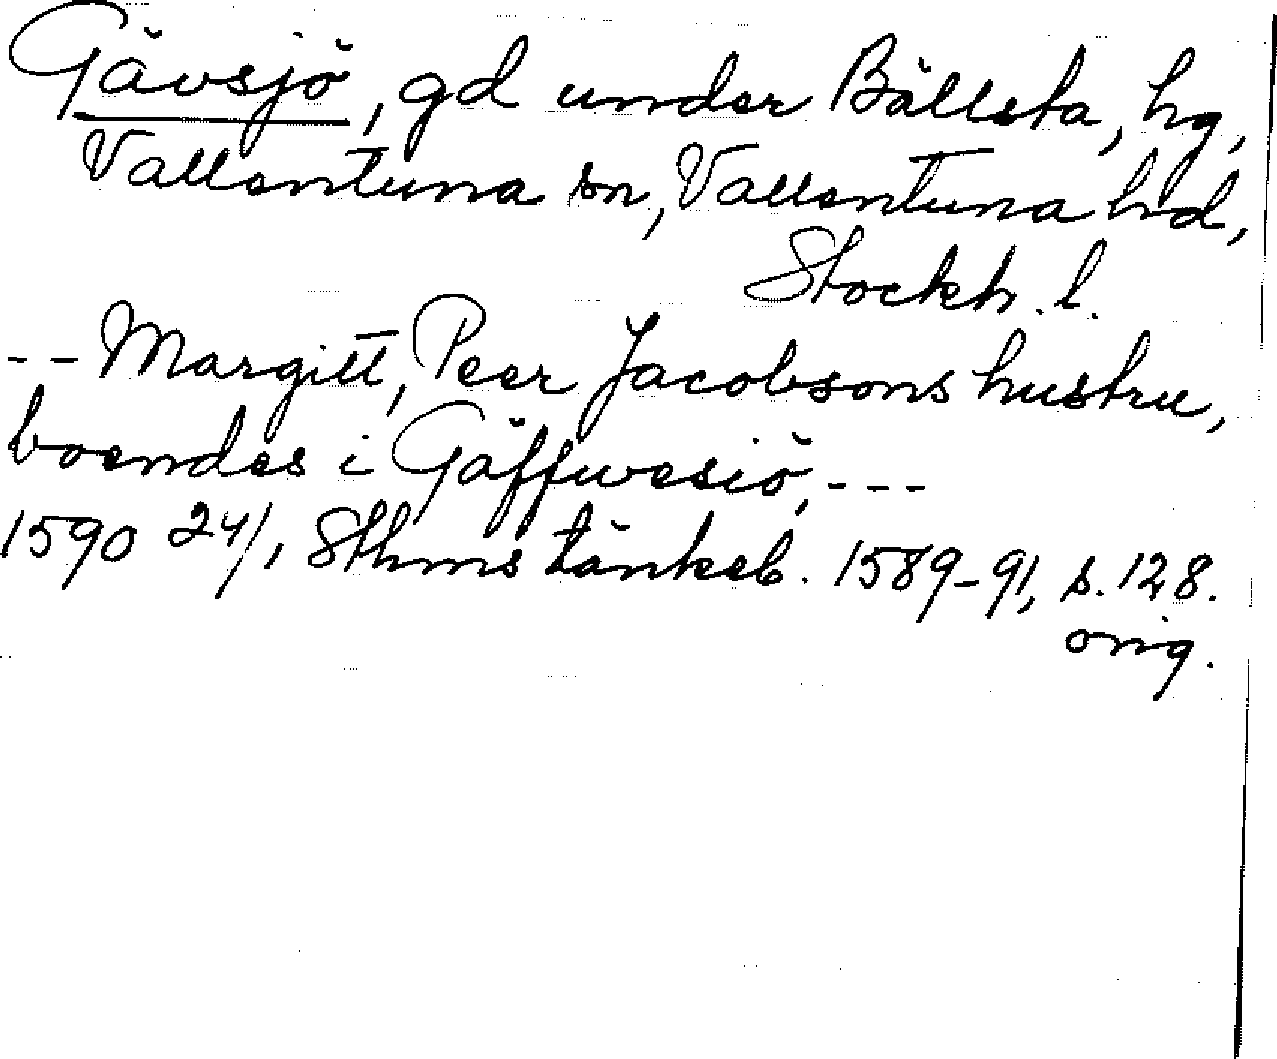 Gävsjö, gd under Bällsta, hg,
Vallentuna sn, Vallentuna hd,
Stockh. l.
-- Margitt, Peer Jacobsons hustru,
boendes i Gäffwesiö, ---
1590 24/1, Sthms tänkeb. 1589-91, s. 128.
orig.